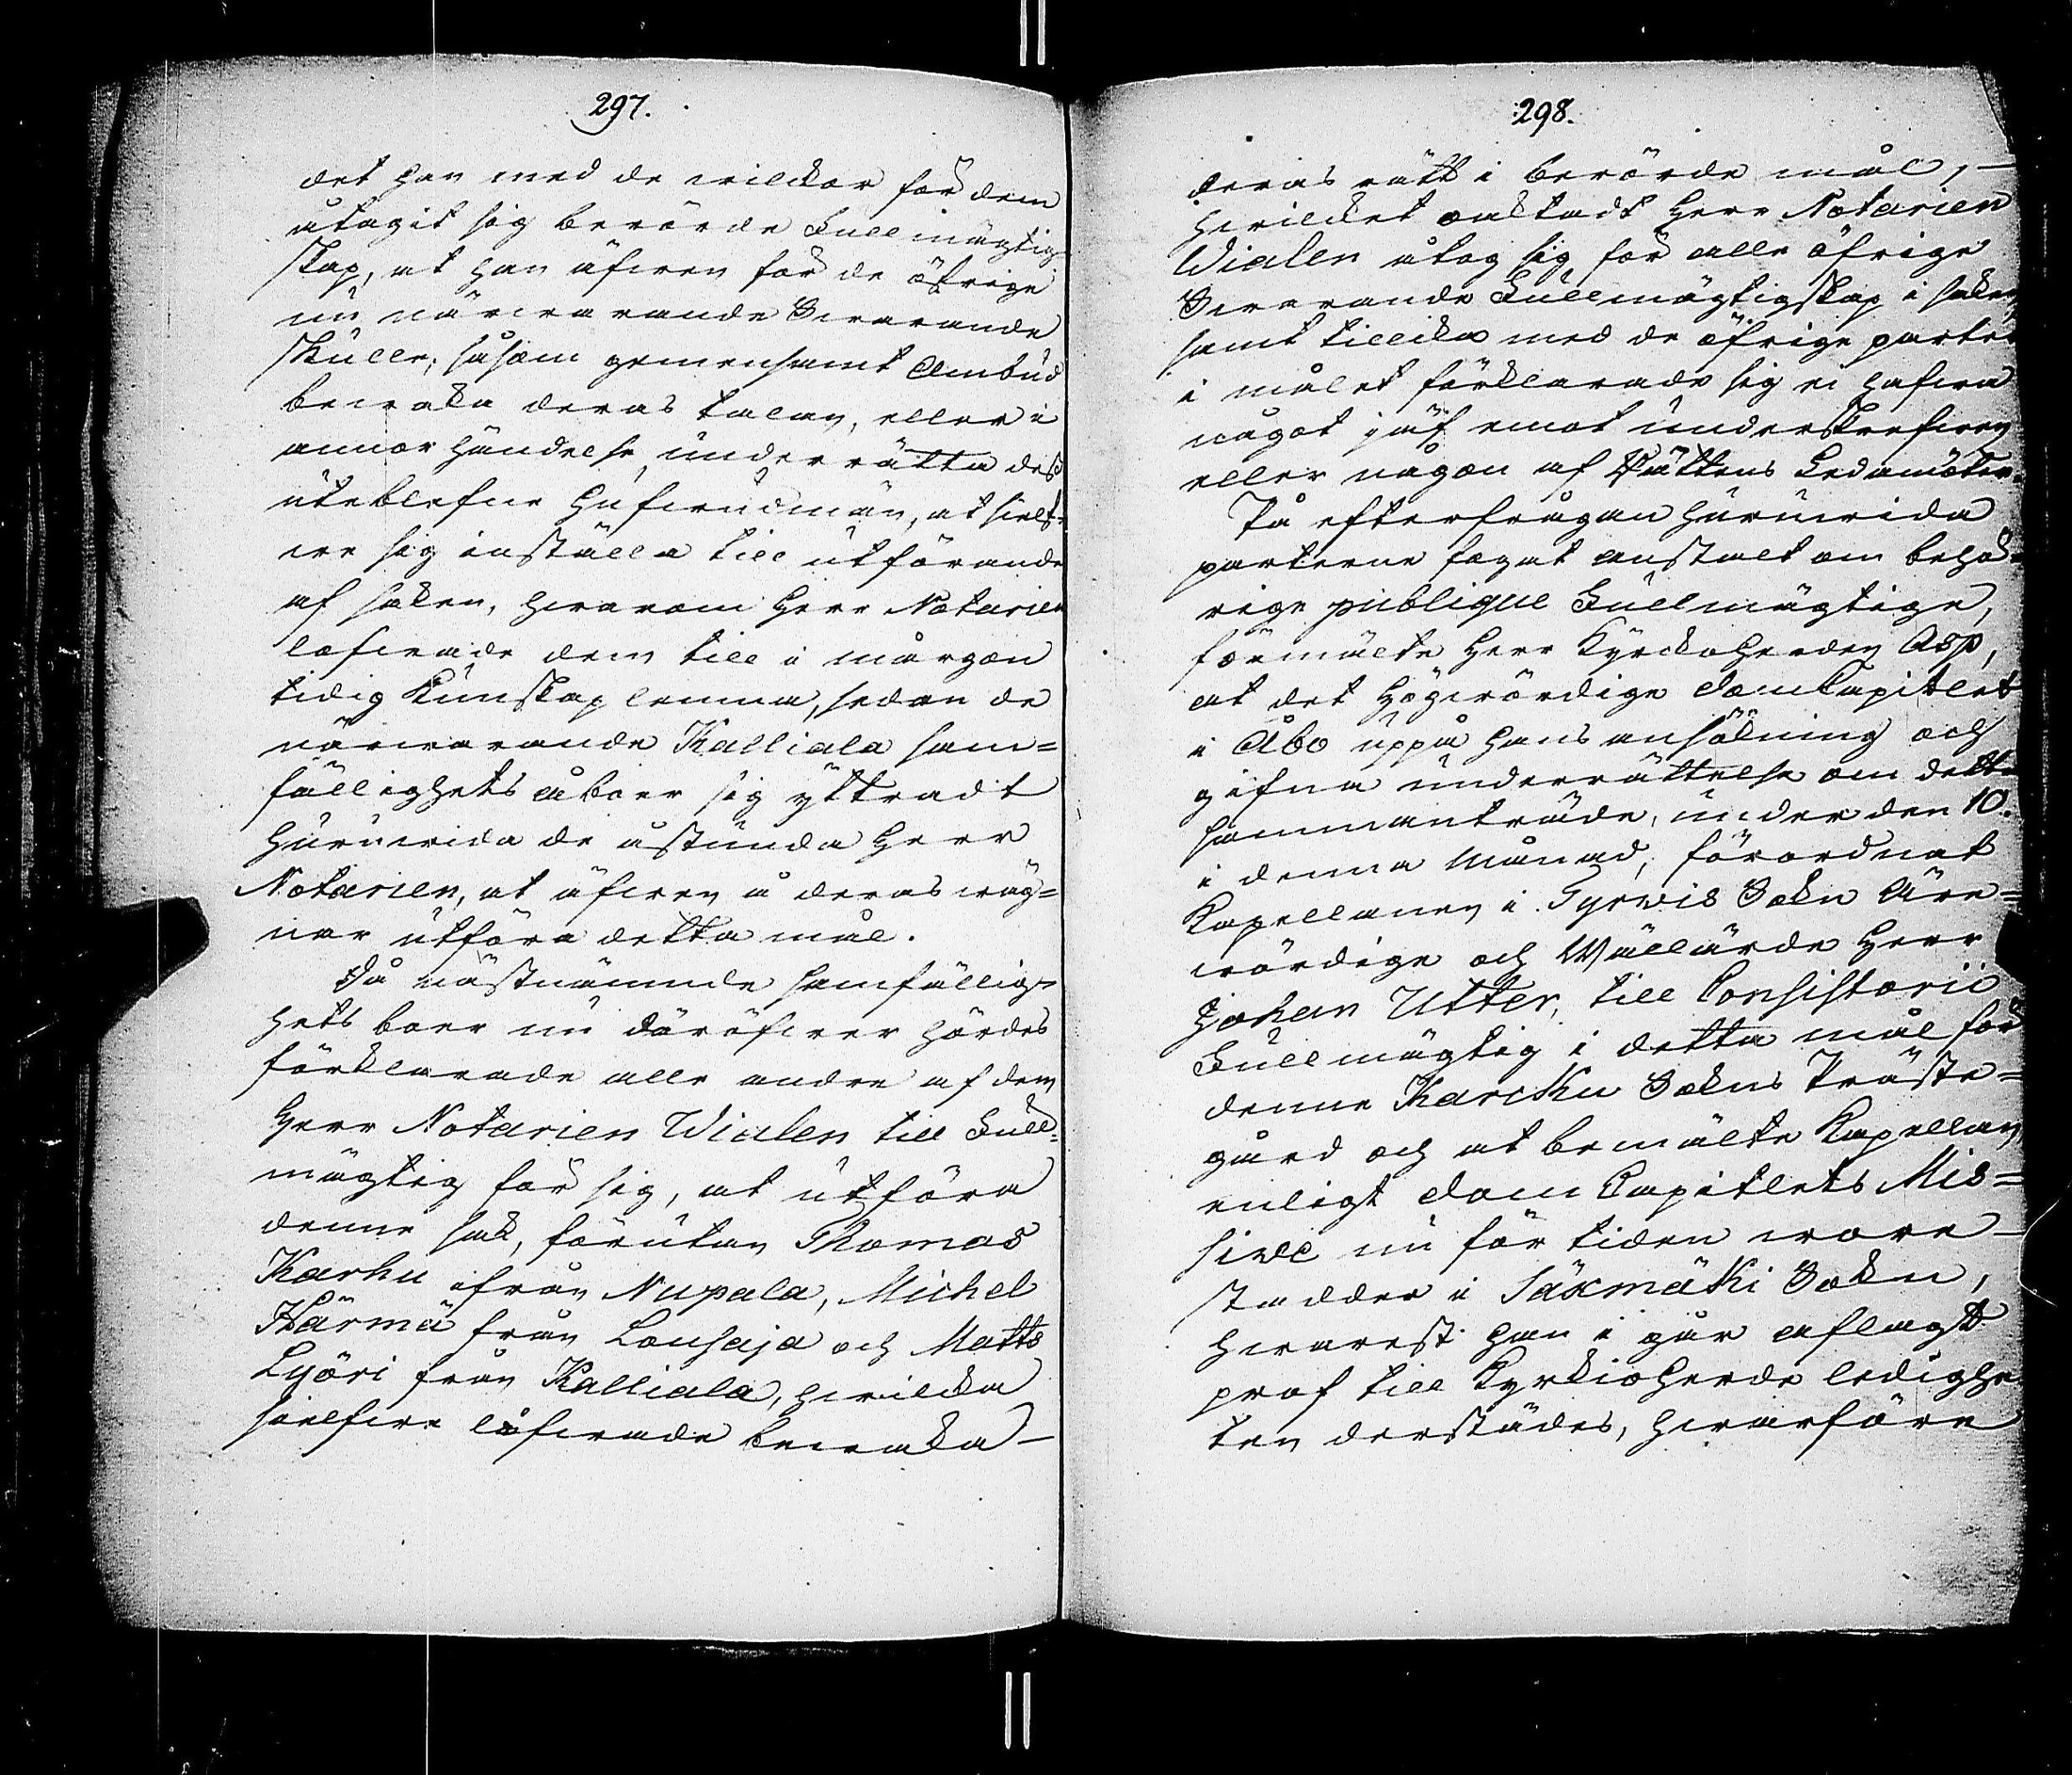 297.
det han med de wilckor för dem
åtagit sig berörde Fullmägtig-
skap, at han äfwen för de öfrige
nu närwarande Swarande
skulle, såsom gemensamt Ombud
bewaka deras talan, eller i
annor händelse underrätta dess
uteblefne Hufwudmän, at sielf-
we sig inställa till utförande
af saken, hwarom Herr Notarien
lofwade dem till i mårgon
tidig kunskap lemna, sedan de
närwarande Kalliala sam=
fällighets åboer sig yttradt
huruwida de åstunda Herr
Notarien, at äfwen å deras wäg=
nar utföra detta mål.
Då nästnämnde samfällig-
hets boer nu däröfwer hördes
förklarade alle andre af dem
Herr Notarien Wialen till Full-
mägtig för sig, at utföra
denne sak, förutan Thomas
Karhu ifrån Nupala, Michel
Härmä från Lousaja och Matts
Lyöri från Kalliala, hwilcka
sielfwe låfwade bewaka
298.
deras rätt i berörde mål,
hwilcket omstadt Herr Notarien
Wialen åtog sig för alle öfrige
Swarande Fullmägtigskap i saken,
samt tillika med de öfrige parter
i målet förklarade sig ei hafwa
något jäf emot underskrefwen
eller någon af Rättens Ledamöter.
På efterfrågan huruwida
parterne fogat anstalt om behö=
rige publique Fullmägtige,
förmälte Herr Kyrckoherden Asp,
at det Högwördige DomCapitlet
i Åbo uppå hans ansökning och
gifna underrättelse om detta
sammanträde, under den 10.
i denna Månad, förordnat
Kapellanen i Tyrwis Sokn Äre=
wördige och Wällärde Herr
Johan Utter, till Consistorii
Fullmägtig i detta mål för
denne Karcku Sokns Präste=
gård och at bemälte Kapellan
enligt Dom Capitlets Mis=
sive nu för tiden wore
stadder i Säxmäki Sokn,
hwarest han i går aflagt
prof till Kyrkioherde ledighe
ten derstädes, hwarföre